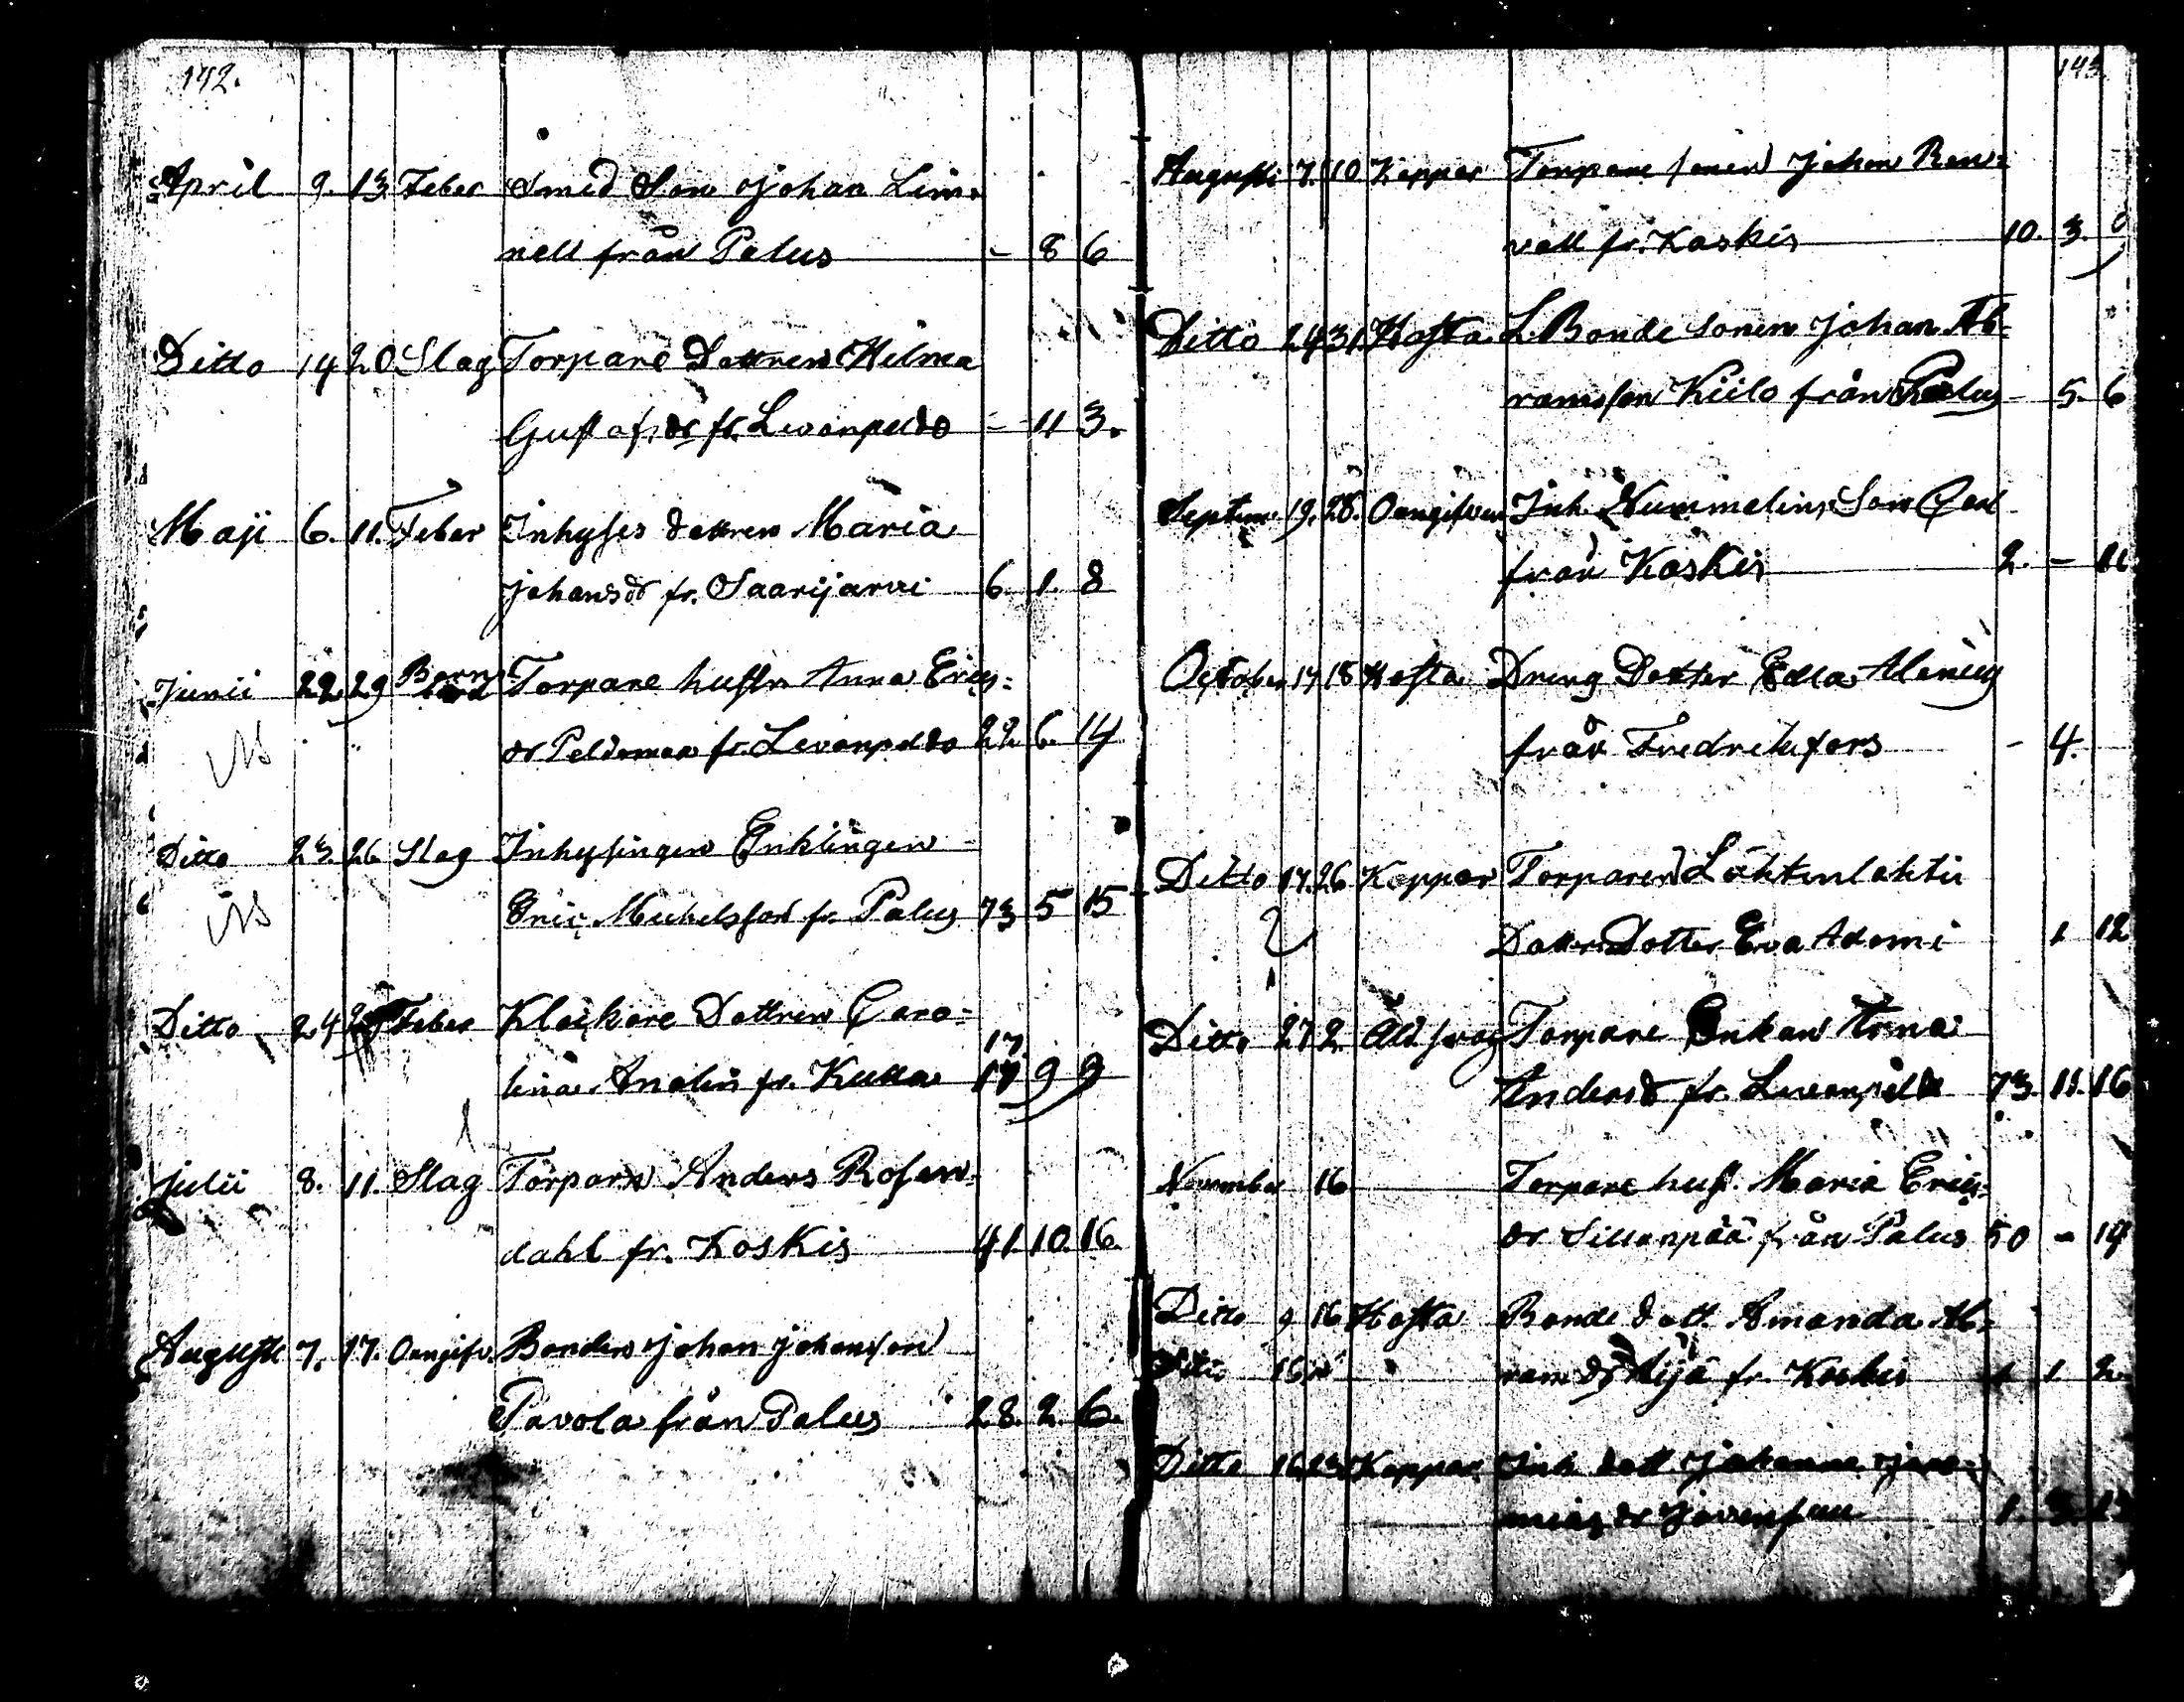 142.
April 9. 13. Feber Smed Son Johan Lin-
nell från Palus - 8 6
Ditto 14 20 Slag Torpare Dottren Hilma
Gustafsdr fr. Levanpeldo - 11 3.
Maji 6. 11. Feber Inhyses dottren Maria
Johansdr fr. Saarijarvi 6 1. 8
Junii 22 29 Barn Torpare hustr. Anna Erics-
NS dr Peldomaa fr. Levanpeldo 22. 6. 14
Ditto 23. 26 Slag Inhysingen Enklingen
NS Eric Michelsson fr. Palus 73 5 15
Ditto 24 Feber Klockare Dottren Caro-
17
lina Analin fr. Kulla 17 9 9
Julii 8. 11. Slag Torparn Anders Rosen-
dahl fr. Koskis 41. 10. 16.
Augusti 7. 17. Oangifv. Bonden Johan Johansson
Pavola från Palus 28. 2. 6.
143
Augusti 7. 10 Koppor Torpare sonen Johan Ren-
vall fr. Koskis 10. 3. 9
Ditto 24 31. Hosta L. Bonde sonen Johan Ab-
ramsson Kiilo från Palus - 5. 6
Septem 19. 28. Oangifven Inh. Nummelins Son Carl
från Koskis 2. - 11.
October 17 18 Hosta Dreng Dotter Edla Alenius
från Fredriksfors - 4.
Ditto 17. 26 Koppor Torparen Lähtenlahti
Dotter Dotter Eva Adami 1 12
Ditto 27 2. Åld. svag Torpare Enkan Anna
Andersdr fr. Levanpeldo 73. 11. 16
November 16 Torpare hust. Maria Erics-
dr Sillanpää från Palus 50 - 19
Ditto 9 16 Hosta Bonde dott. Amanda Ab-
Ditto 16 ramsdr Äijä fr. Koskis 1 1 2
Ditto 16 Koppor Inh. dott Johanna Jere-
miasdr Jovensuu 1. 3. 13